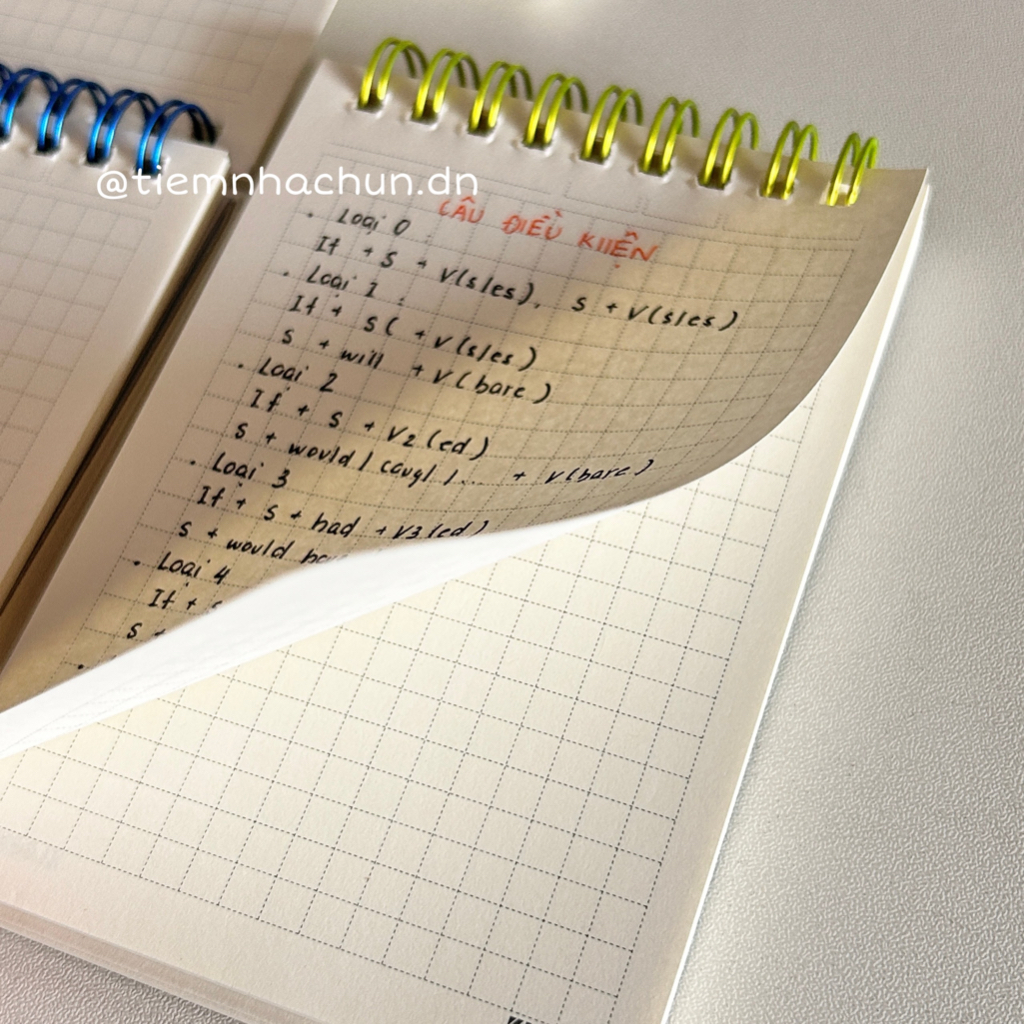 @tiemnhachun.dn
CÂU ĐIỀU KIIỆN
• Loại 0 :
If + S + V(s/es), S + V(s/es)
• Loại 1 :
If + S ( + V(s/es)
S + will + V(bare)
• Loại 2
If + S + V2(ed)
S + would / ... + V(bare)
• Loại 3
If + S + had + V3(ed)
S + would
• Loại 4
If +
S +